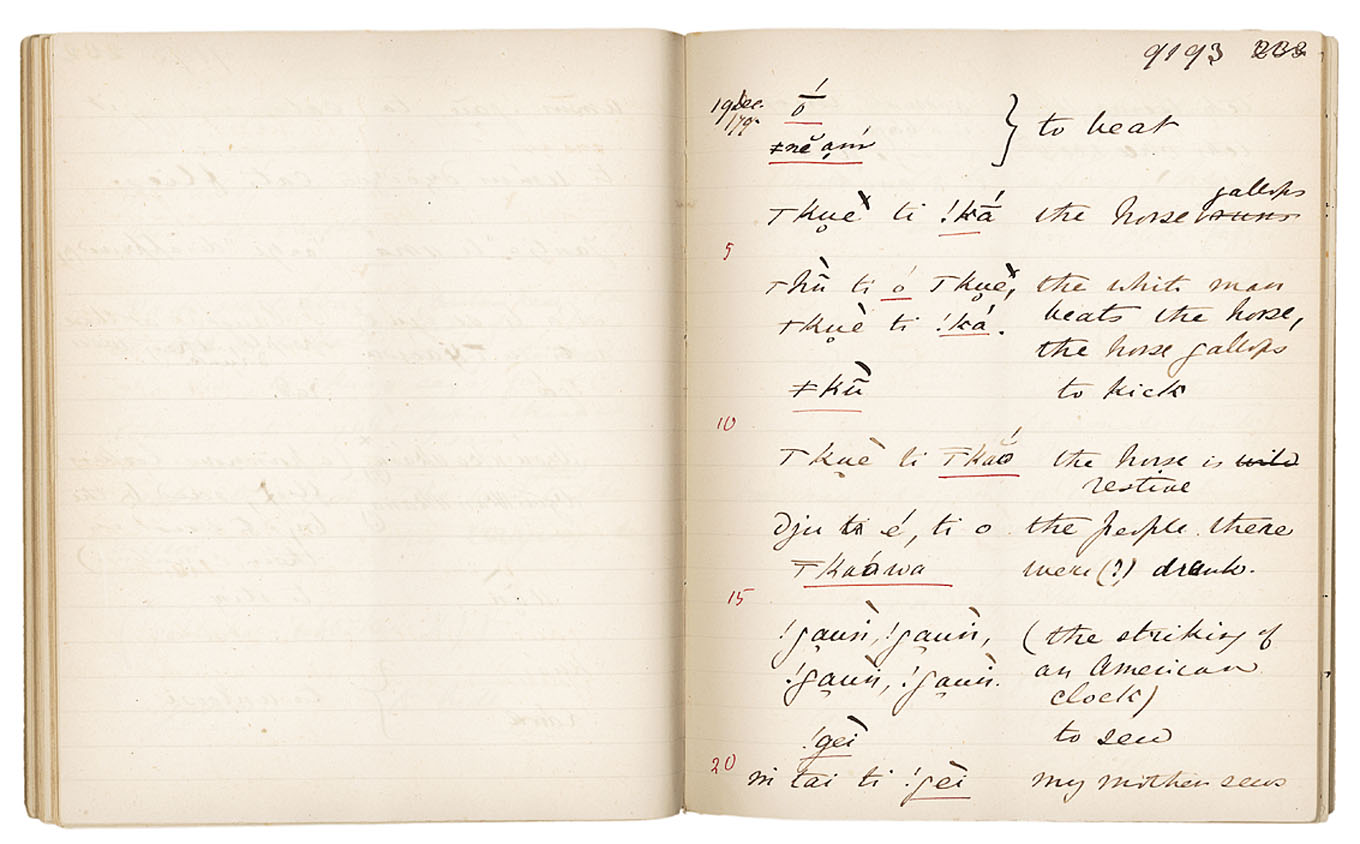 9193 233
19 Dec. /79. ó̄
ǂnĕ ạḿ } to beat
⊤kụè ti !kā́ the horse gallops runs
5
⊤hȕ̄ ti ó ⊤kụè, the white man
⊤kụè ti !ká. beats the horse,
the horse gallops
ǂkȕ̄ to kick
10
⊤kụè ti ⊤kaó the horse is wild
restive
Dju é, ti o the people there
⊤kaáwa were (?) drunk.
15
!gạuǹ, !gạuǹ, (the striking of
!gạuǹ, !gạuǹ. an American
clock)
!gèi to sew
20 m̀ tai ti !gèi my mother sews